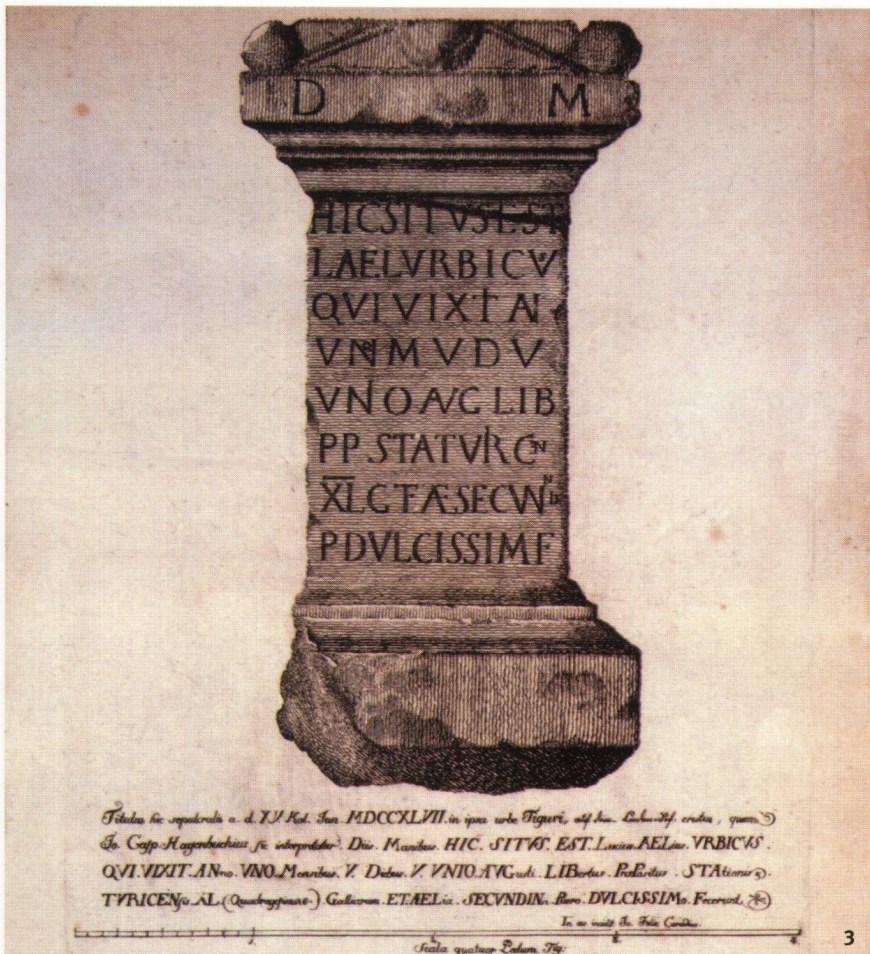 D M
HIC SITVS EST
L AEL VRBICV
QVI VIXIT AN
VNO M V D V
VNIO AVG LIB
PP STA TVRICEN
XL G ET AE SECVNDIN
P DVLCISSIM F
Titulus hic sepulcralis a. d. XV. Kal. Jun. MDCCXLVII. in ipsa urbe Tiguri, erutus, quem
Jo. Casp. Hagenbuchius sic interpretatur. Diis. Manibus. HIC. SITVS. EST. Lucius. AELius. VRBICVS.
QVI. VIXIT. ANno. VNO. Mensibus. V. Diebus. V. VNIO. AVGusti. LIBertus. PræPositus. STAtionis.
TVRICENsis. XL. (Quadragesimæ.) Galliarum. ET. AELia. SECVNDINa. Puero. DVLCISSIMo. Fecerunt.
In æs incidit Jo.
1. 2. 3. 4.
Scala quatuor Pedum Tig:
3